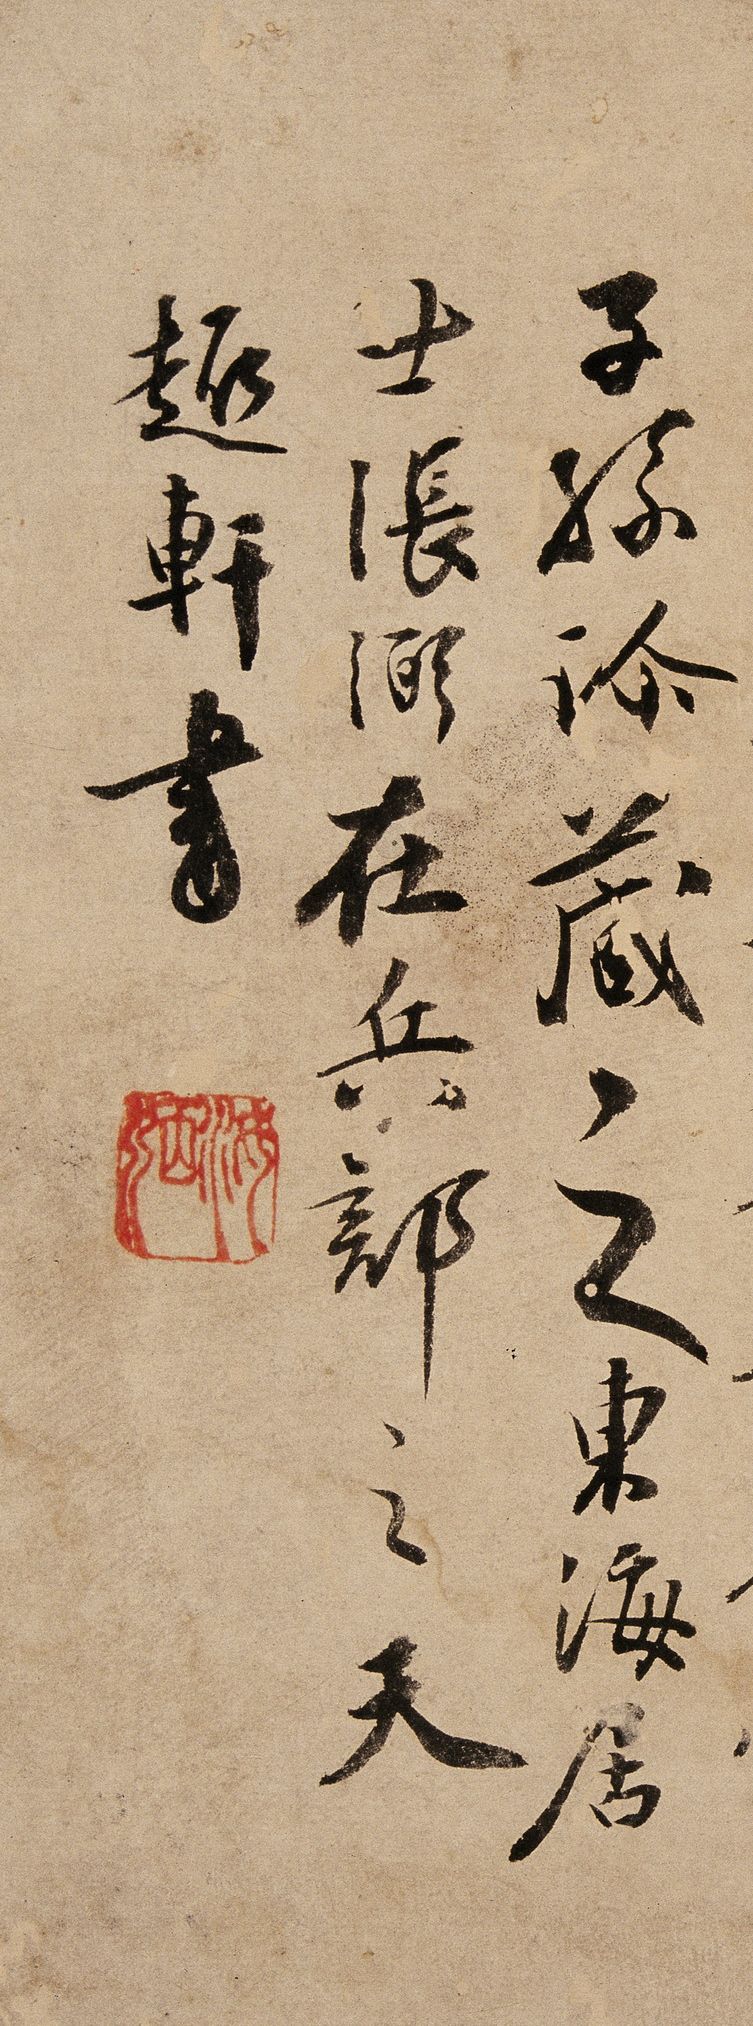 子孫珍藏之東海居
士張弼在兵部之天
趣軒書